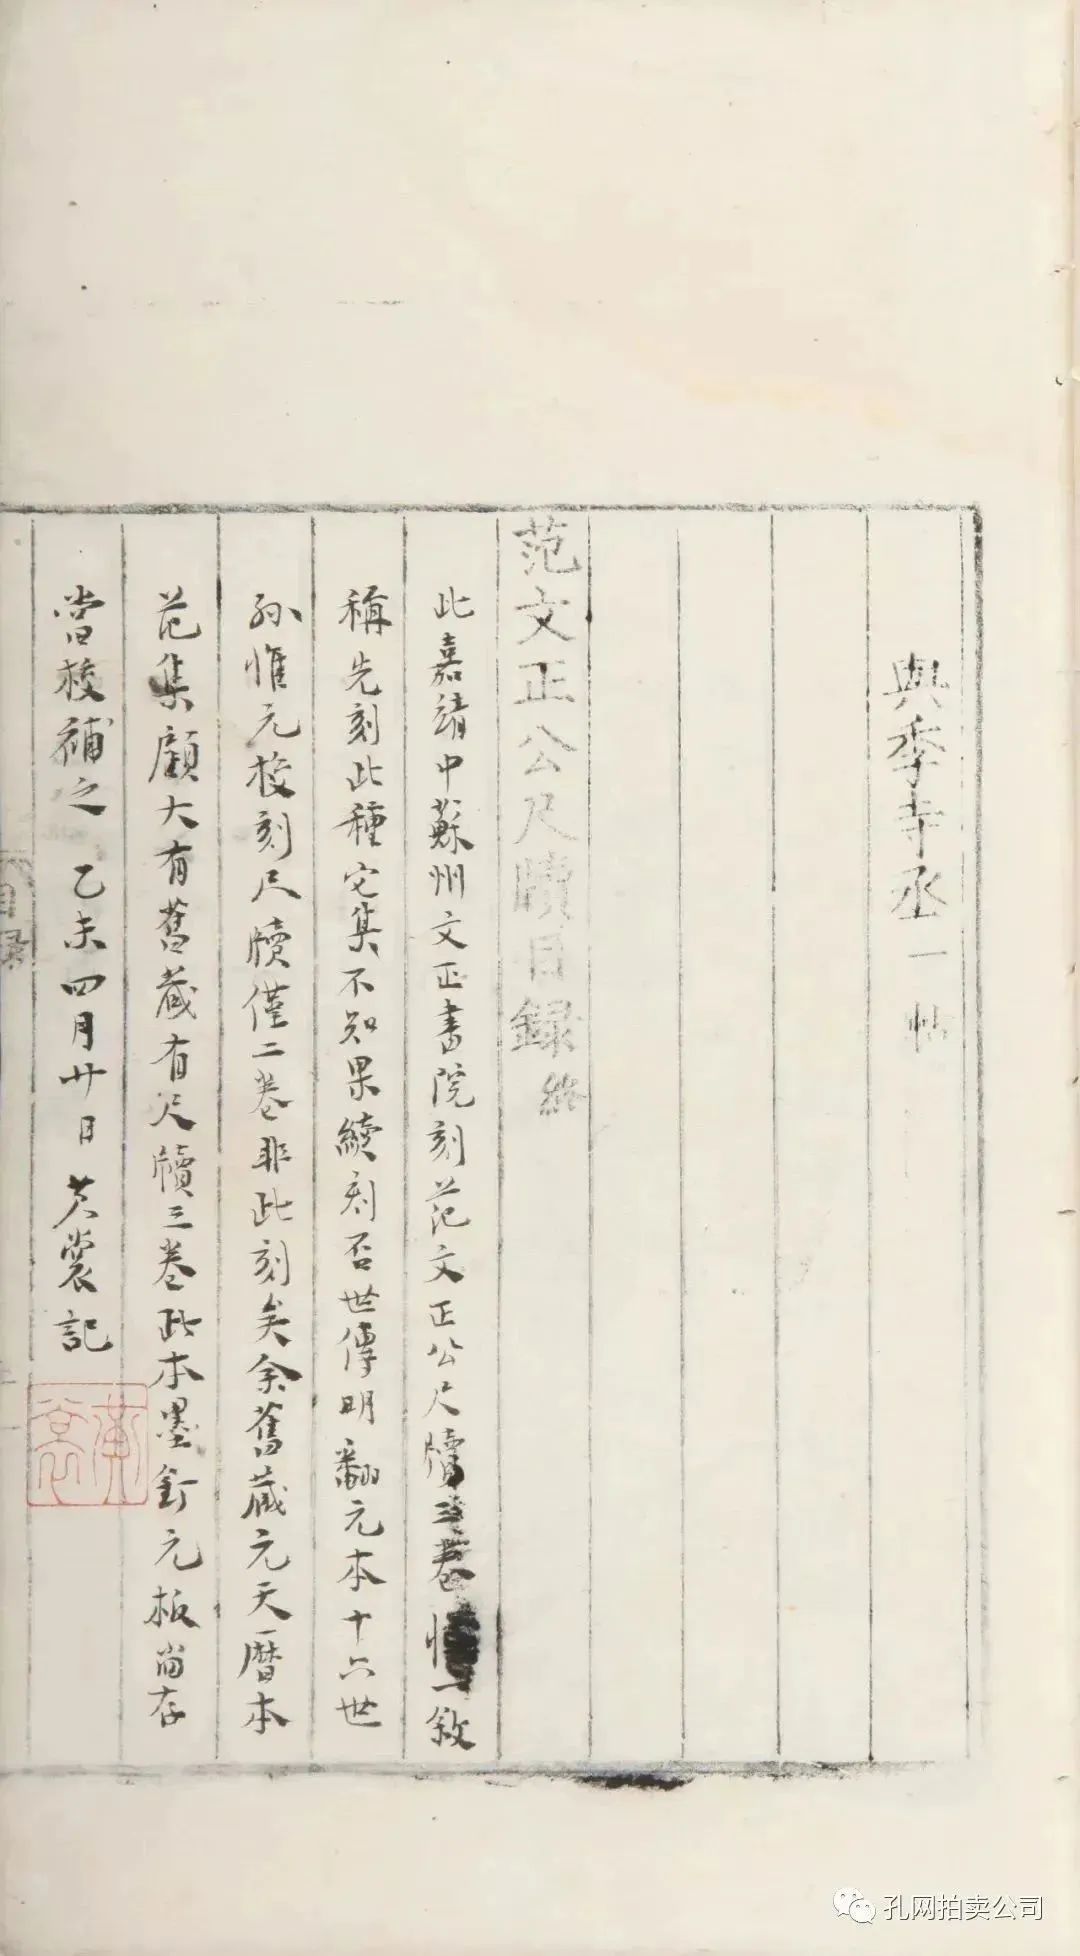 與季寺丞一帖
范文正公尺牘目録終
此嘉靖中蘇州文正書院刻范文正公尺牘三卷敘
稱先刻此種它集不知果續刻否世傳明翻元本十六世
孫惟元校刻尺牘僅二卷非此刻矣余舊藏元天曆本
范集顧大有舊藏有尺牘三卷此本墨釘元板尚存
當校補之 乙未四月廿日 黃裳記
黃裳
目録
孔网拍卖公司